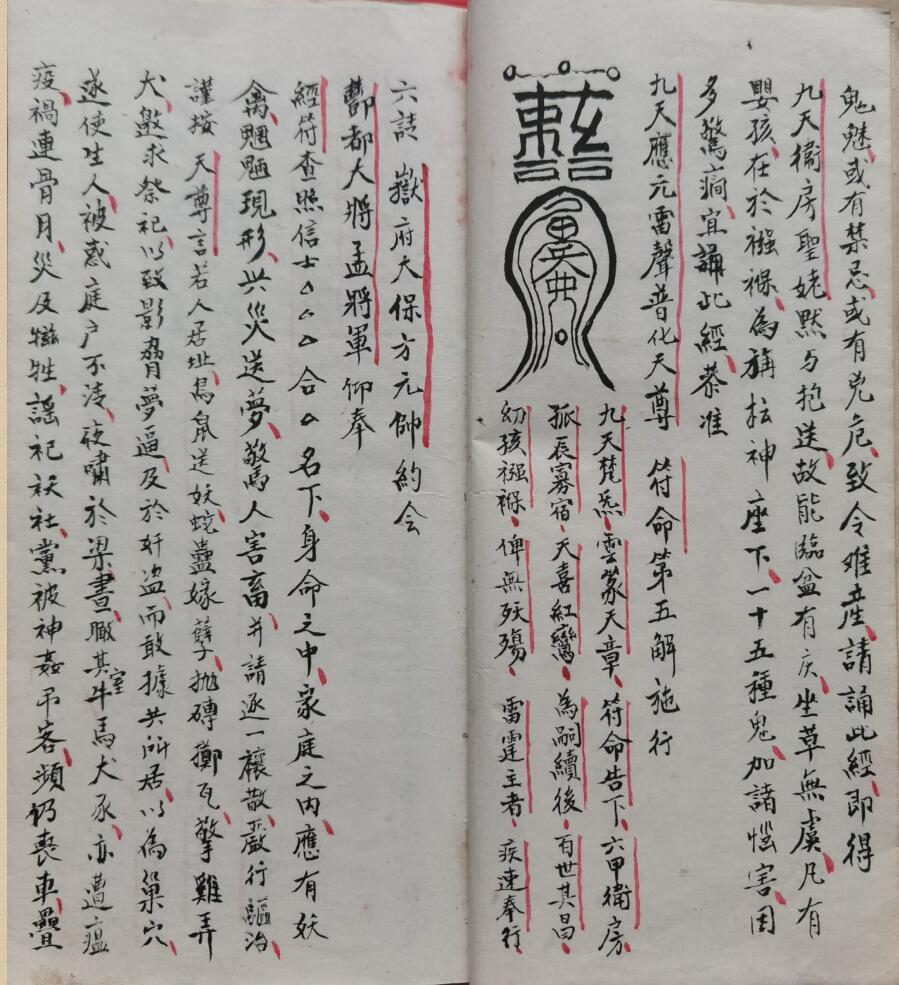 鬼魅或有禁忌或有兇危致令难産請誦此經即得
九天衛房聖姥默与抱送故能臨盆有庆坐草無虞凡有
嬰孩在於襁褓為旃枟神座下一十五種鬼加諸惱害因
多驚癇宜誦此經恭准
九天應元雷聲普化天尊 符命第五解施行
九天梵炁雲篆天章符命告下六甲衛房
孤辰寡宿天喜紅鸞為嗣續後百世其昌
幼孩襁褓俾無殀殤雷霆主者疾速奉行
六誌 嶽府大保方元帥約会
酆都大將孟將軍仰奉
經符查照信士△△△合△名下身命之中家庭之内應有妖
禽魍魎現形兴災送夢驚人害畜并請逐一禳散嚴行驅治
謹按 天尊言若人居址鳥鼠送妖蛇蟲嫁孽抛磚擲瓦驚雞弄
犬邀求祭祀以致影脅夢逼及於奸盗而敢據其所居以為巢穴
遂使生人被惑庭户不清夜嘯於梁晝瞰其室牛馬犬豕亦遭瘟
疫禍連骨月災及犧牲謡祀妖社黨被神姦吊客頻仍喪車疊